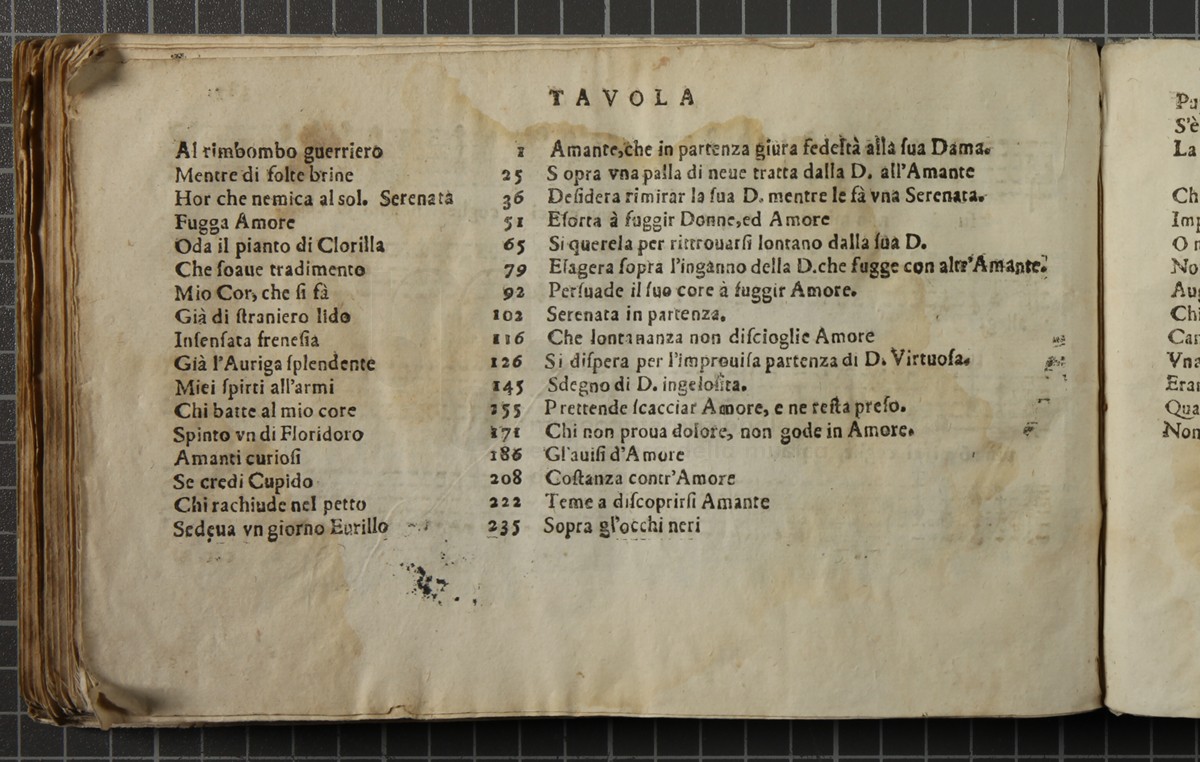 TAVOLA
Al rimbombo guerriero 1 Amante, che in partenza giura fedeltà alla ſua Dama.
Mentre di folte brine 25 Sopra vna palla di neue tratta dalla D. all'Amante
Hor che nemica al sol. Serenata 36 Deſidera rimirar la ſua D. mentre le fà vna Serenata.
Fugga Amore 51 Eſorta à fuggir Donne, ed Amore
Oda il pianto di Clorilla 65 Si querela per rittrouarſi lontano dalla ſua D.
Che ſoaue tradimento 79 Eſagera ſopra l'inganno della D. che fugge con altr'Amante.
Mio Cor, che ſi fà 92 Perſuade il ſuo core à fuggir Amore.
Già di ſtraniero lido 102 Serenata in partenza.
Inſenſata freneſia 116 Che lontananza non diſcioglie Amore
Già l'Auriga ſplendente 126 Si diſpera per l'improuiſa partenza di D. Virtuoſa.
Miei ſpirti all'armi 145 Sdegno di D. ingeloſita.
Chi batte al mio core 255 Prettende ſcacciar Amore, e ne reſta preſo.
Spinto vn di Floridoro 171 Chi non proua dolore, non gode in Amore.
Amanti curioſi 186 Gl'auiſi d'Amore
Se credi Cupido 208 Coſtanza contr'Amore
Chi rachiude nel petto 222 Teme a diſcoprirſi Amante
Sedeua vn giorno Eurillo 235 Sopra gl'occhi neri
S'è
La
Ch
Imp
O
No
Aug
Chi
Vna
Erar
Qua
Non